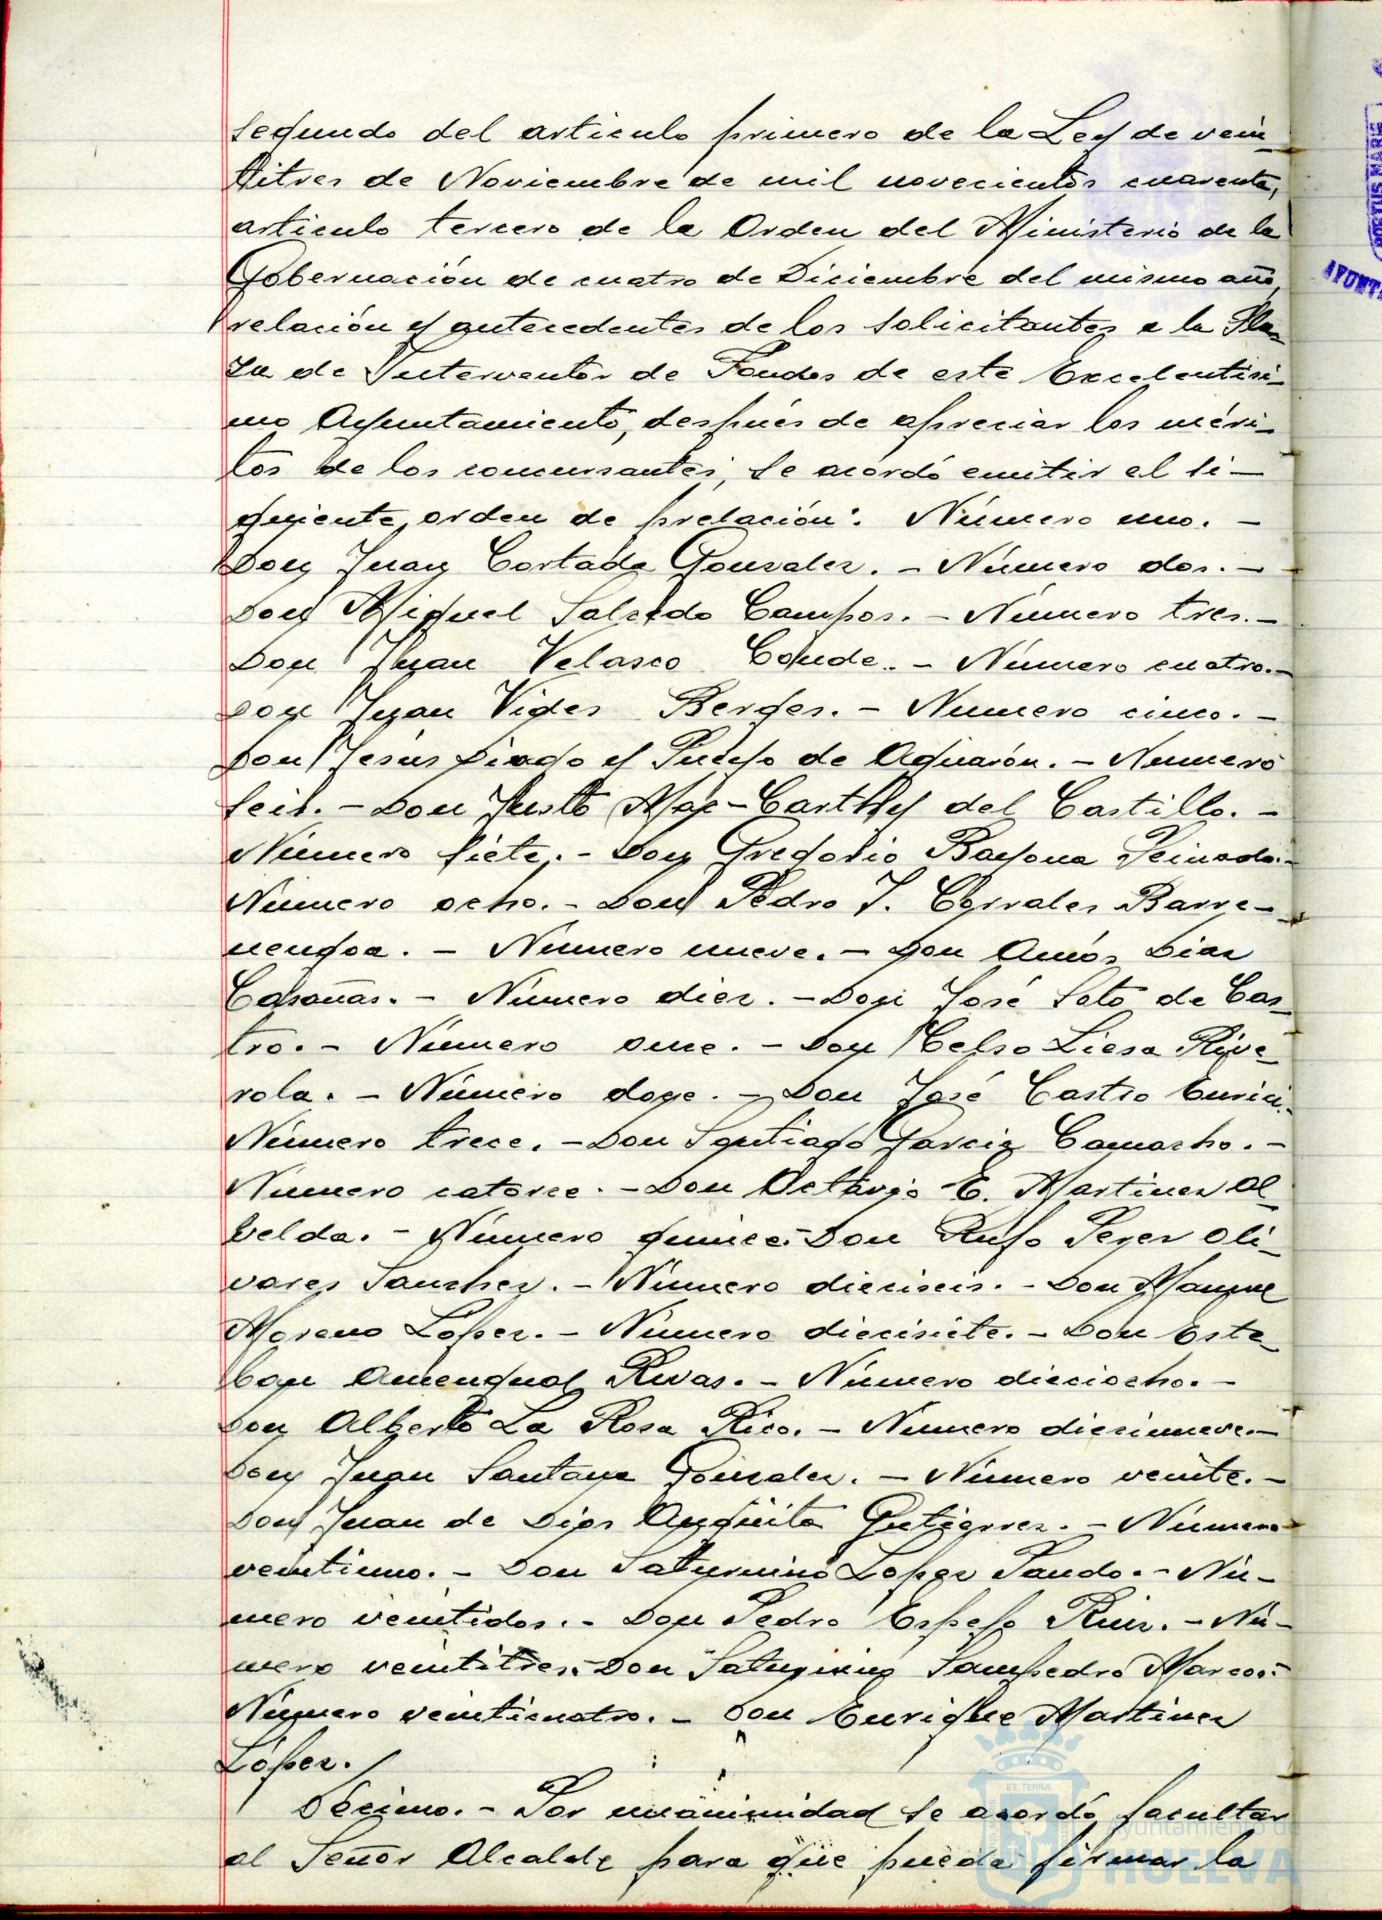 segundo del articulo primero de la Ley de vein-
titres de Noviembre de mil novecientos cuarenta,
articulo tercero de la Orden del Ministerio de la
Gobernación de cuatro de Diciembre del mismo año,
relación y antecedentes de los solicitantes a la Pla-
za de Interventor de Fondos de este Excelentisi-
mo Ayuntamiento, después de apreciar los méri-
tos de los concursantes, se acordó emitir el si-
guiente orden de prelación: Número uno. -
Don Juan Cortada Gonzalez. - Número dos. -
Don Miguel Salcedo Campos. - Número tres. -
Don Juan Velasco Conde. - Número cuatro. -
Don Juan Vides Berges. - Numero cinco. -
Don Jesús y Pueyo de Aguarón. - Numero
seis. - Don Justo Mac-Carthy del Castillo. -
Número siete. - Don Gregorio Bayona Peinado. -
Número ocho. - Don Pedro J. Corrales Barre-
nengoa. - Número nueve. - Don Amós Diaz
Casañas. - Número diez. - Don José Soto de Cas-
tro. - Número once. - Don Celso Liesa Rive-
rola. - Número doce. - Don José Castro
Número trece. - Don Santiago Garcia Camacho. -
Número catorce. - Don Octavio E. Martinez Al-
belda. - Número quince. - Don Rufo Perez Oli-
vares Sanchez. - Número dieciseis. - Don Manuel
Moreno Lopez. - Número diecisiete. - Don Este-
ban Amengual Rivas. - Número dieciocho. -
Don Alberto La Rosa Rico. - Número diecinueve. -
Don Juan Santana Gonzalez. - Número veinte. -
Don Juan de Dios Anguita Gutierrez. - Número
veintiuno. - Don Saturnino Lopez Pando. - Nú-
mero veintidos. - Don Pedro Espejo Ruiz. - Nú-
mero veintitres. - Don Saturnino Sampedro Marcos. -
Número veinticuatro. - Don Enrique Martinez
López.
Décimo. - Por unanimidad se acordó facultar
al Señor Alcalde para que pueda firmar la
ET TERRÆ
Ayuntamiento de
HUELVA
PORTUS MARIS
AYUNT